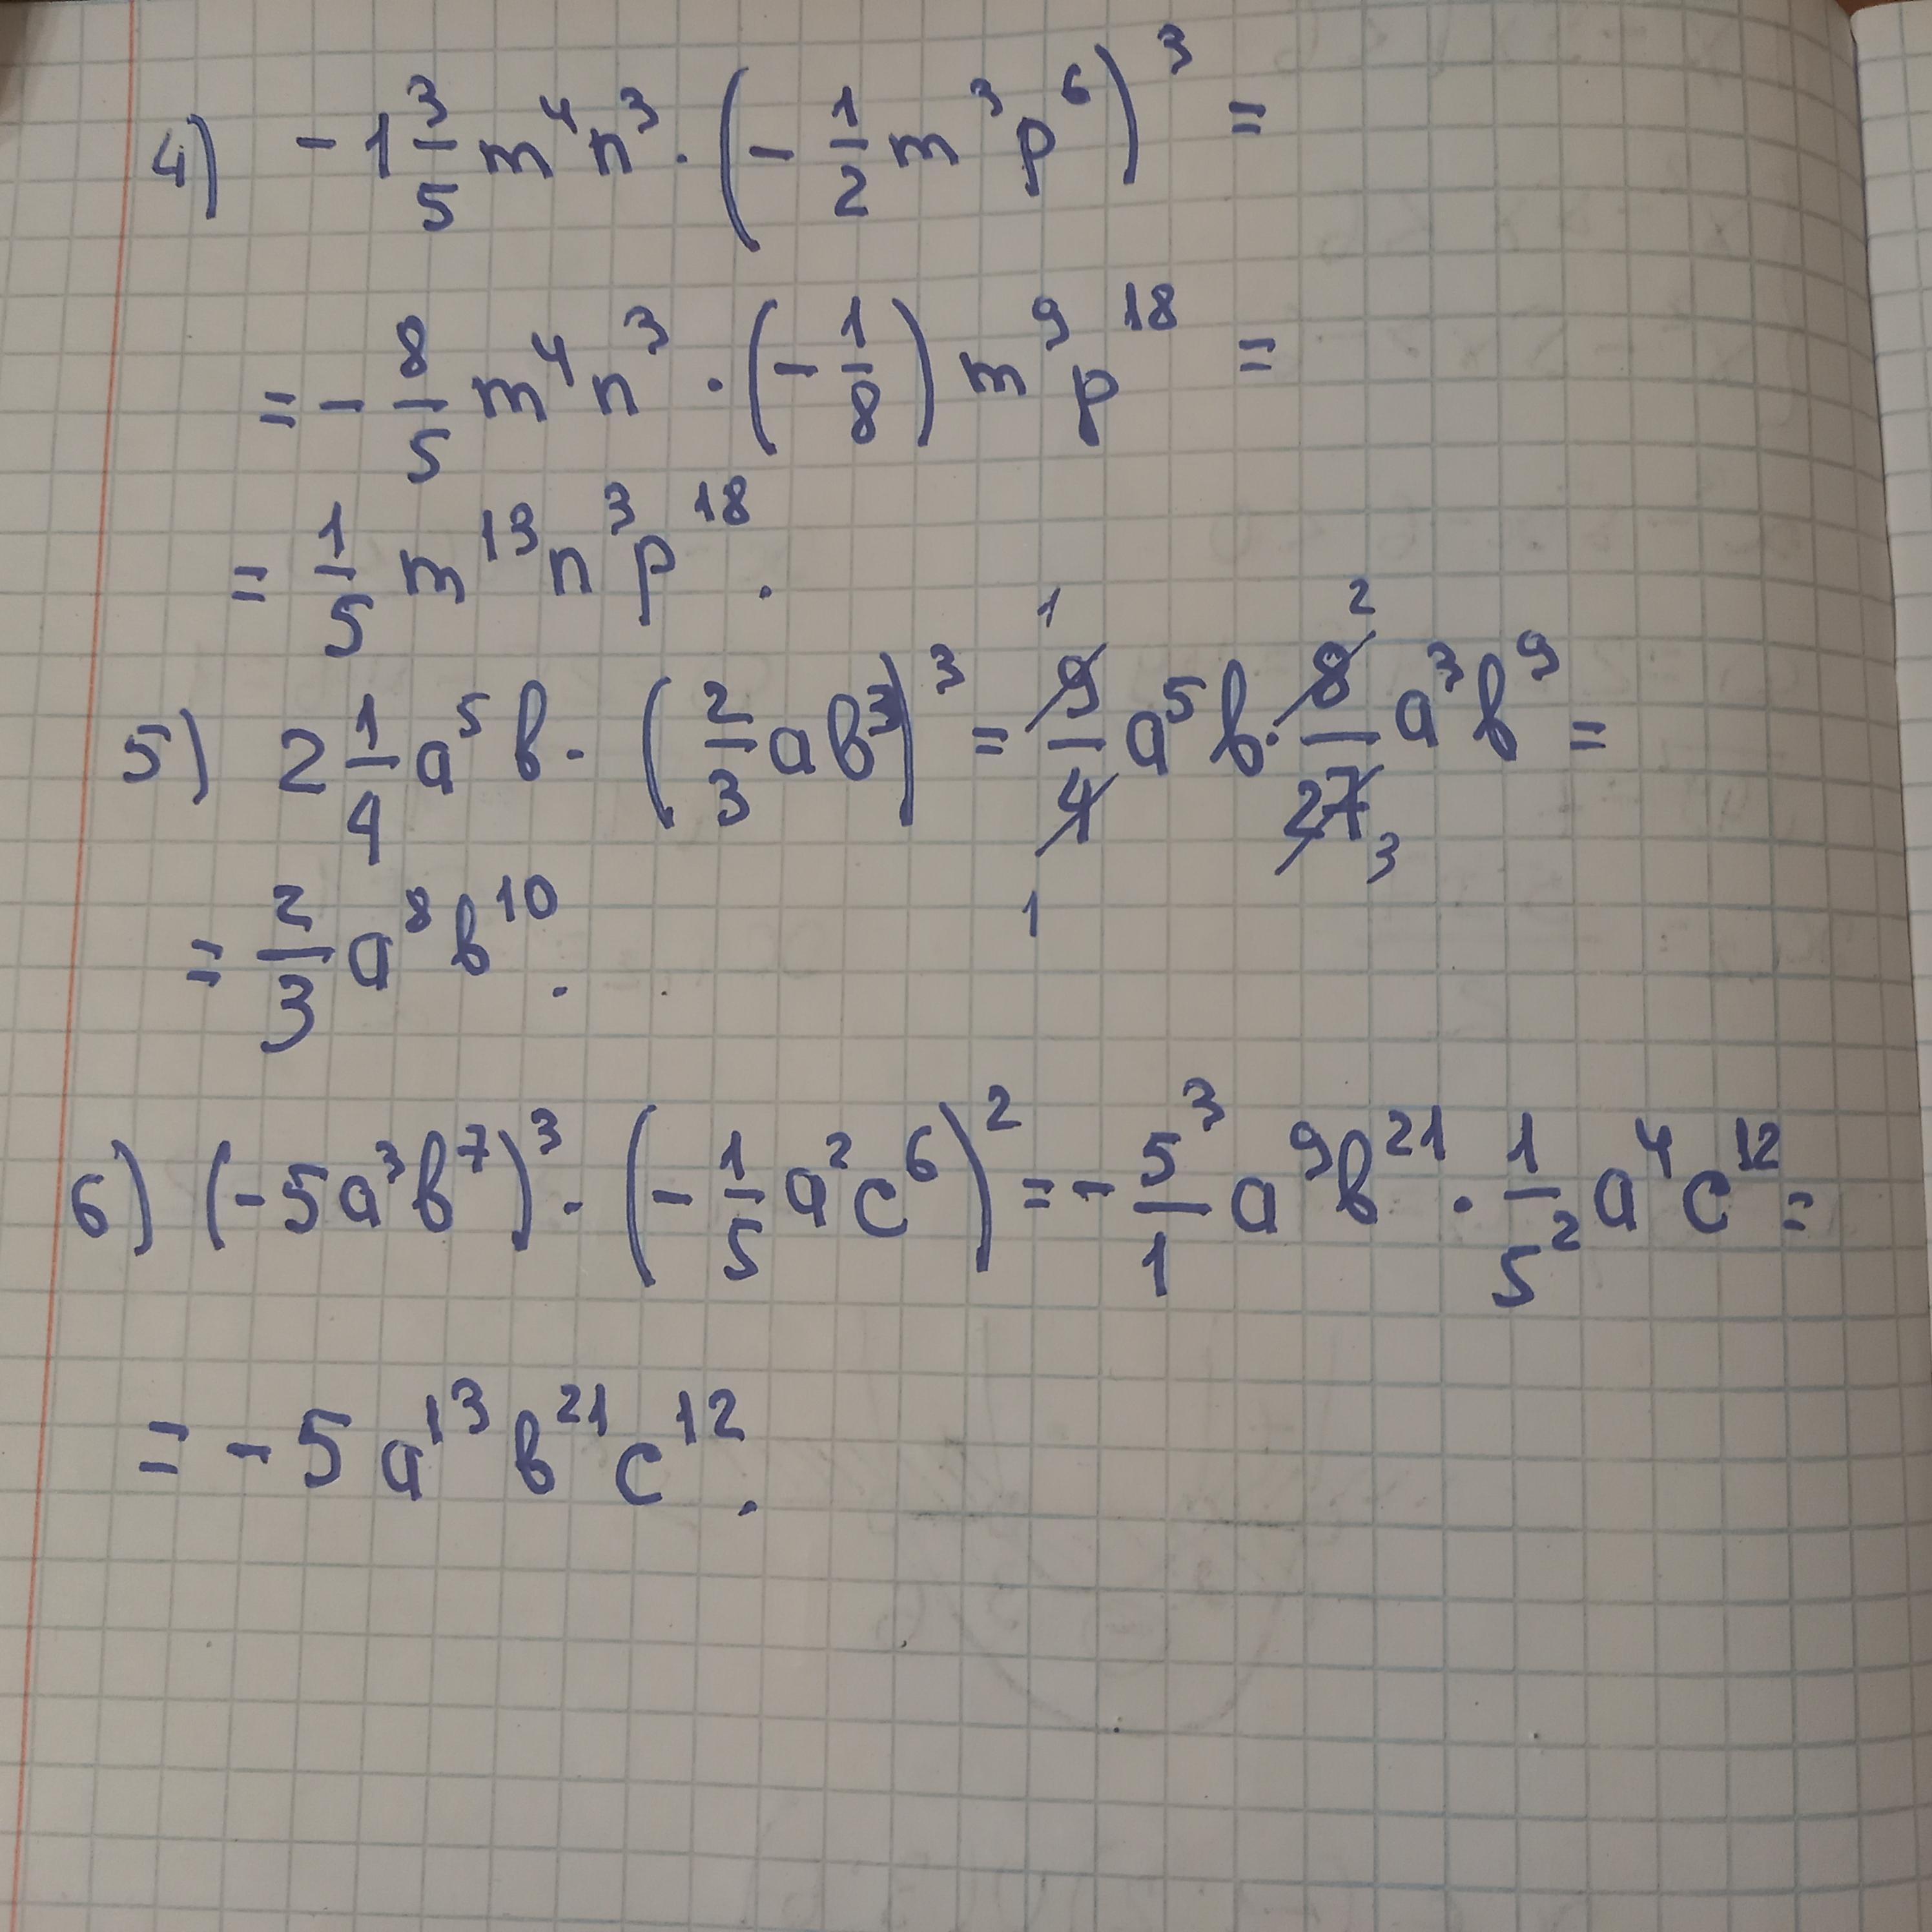 4) -1 3/5 m⁴n³ · (- 1/2 m³p⁶)³ =
= - 8/5 m⁴n³ · (- 1/8) m⁹p¹⁸ =
= 1/5 m¹³n³p¹⁸.
5) 2 1/4 a⁵b · (2/3 ab³)³ = 9/4 a⁵b · 8/27 a³b⁹ =
1 2
1 3
= 2/3 a⁸b¹⁰.
6) (-5a³b⁷)³ · (- 1/5 a²c⁶)² = - 5³/1 a⁹b²¹ · 1/5² a⁴c¹² =
= -5a¹³b²¹c¹².